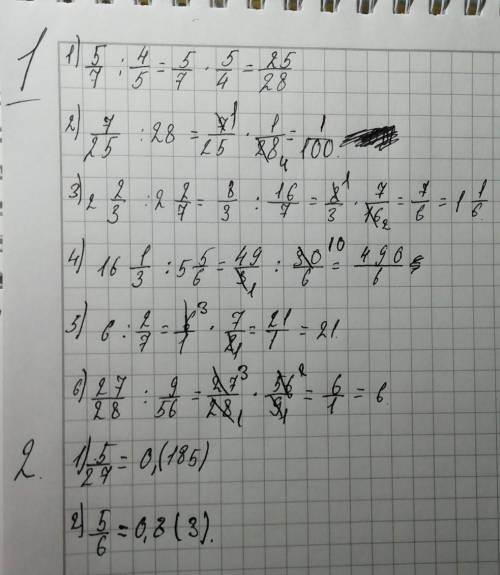 1
1) 5/7 : 4/5 = 5/7 · 5/4 = 25/28
2) 7/25 : 28 = 7̸¹/25 · 1/2̸8̸₄ = 1/100.
3) 2 2/3 : 2 2/7 = 8/3 : 16/7 = 8̸¹/3 · 7/1̸6̸₂ = 7/6 = 1 1/6
4) 16 1/3 : 5 5/6 = 49/3̸₁ : 3̸0̸¹⁰/6 = 490/6
5) 6 : 2/7 = 6̸³/1 · 7/2̸₁ = 21/1 = 21.
6) 27/28 : 9/56 = 2̸7̸³/2̸8̸₁ · 5̸6̸²/9̸₁ = 6/1 = 6.
2.
1) 5/27 = 0,(185)
2) 5/6 = 0,8(3).